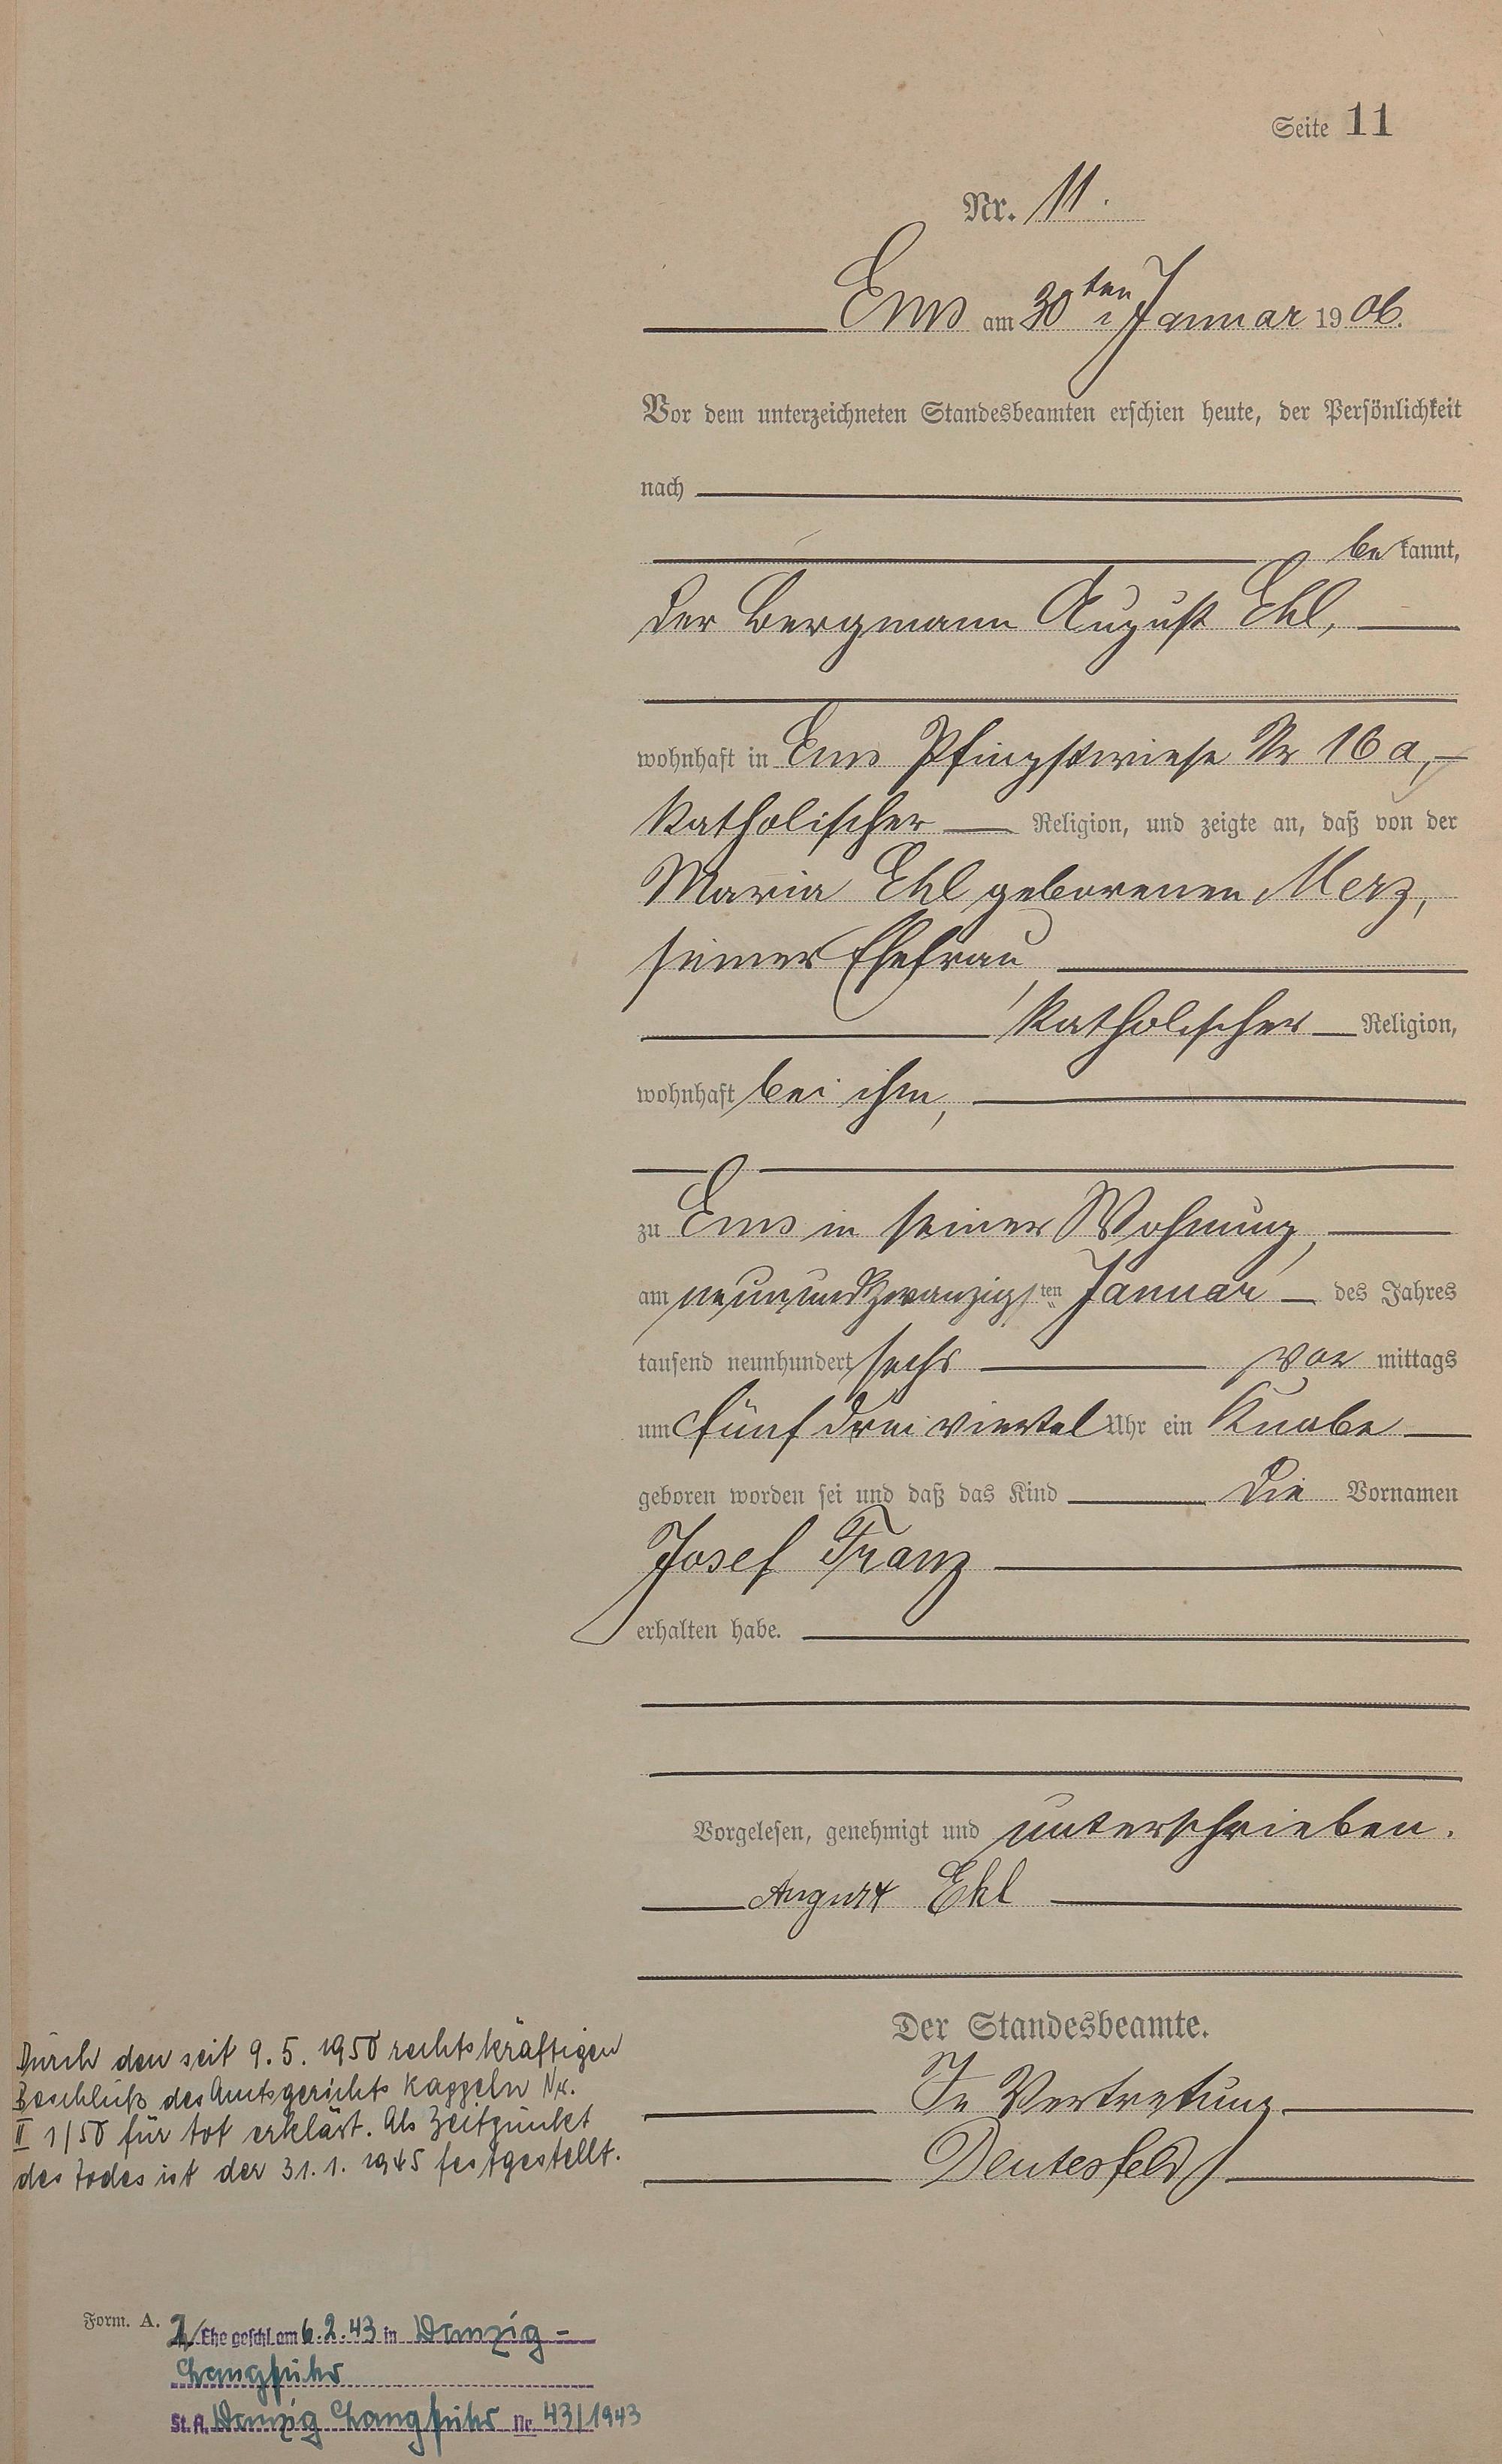 Seite 11
Nr. 11.
Ems am 30ten Januar 1906.
Vor dem unterzeichneten Standesbeamten erschien heute, der Persönlichkeit
nach
be kannt,
der Bergmann August Ehl,
wohnhaft in Ems Pfingstwiese Nr 16a,
katholischer Religion, und zeigte an, daß von der
Maria Ehl geborenen Merz,
seiner Ehefrau,
katholischer Religion,
wohnhaft bei ihm,
zu Ems in seiner Wohnung,
am neunundzwanzigsten Januar des Jahres
tausend neunhundert sechs vor mittags
um fünf drei viertel Uhr ein Knabe
geboren worden sei und daß das Kind die Vornamen
Josef Franz
erhalten habe.
Vorgelesen, genehmigt und unterschrieben.
August Ehl
Der Standesbeamte.
In Vertretung
Deutesfeld
Durch den seit 9.5.1950 rechtskräftigen
Beschluß des Amtsgerichts Kappeln Nr.
II 1/50 für tot erklärt. Als Zeitpunkt
des Todes ist der 31.1.1945 festgestellt.
Form. A. 2/ Ehe geschl. am 6.2.43 in Danzig-
Langfuhr
St. A. Danzig Langfuhr Nr. 43/1943